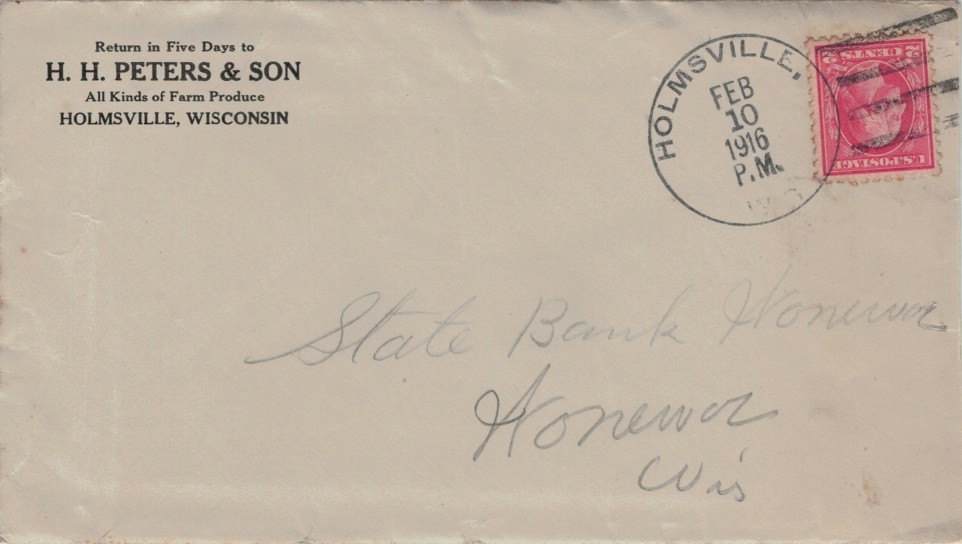 Return in Five Days to
H. H. PETERS & SON
All Kinds of Farm Produce
HOLMSVILLE, WISCONSIN
HOLMSVILLE,
FEB
10
1916
P.M.
WIS
U.S. POSTAGE
2 CENTS 2
State Bank Honewor
Honewor
Wis